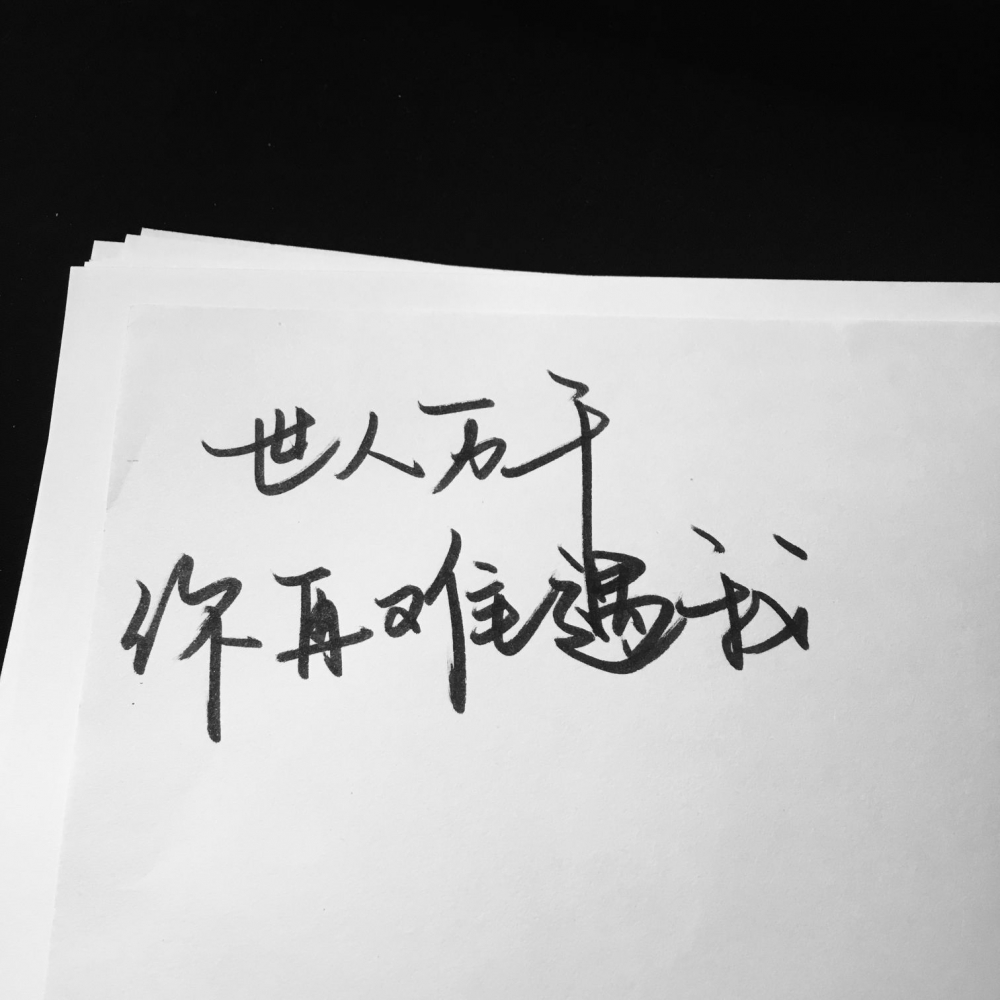 世人万千
你再难遇我